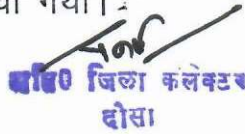 गया।
अति0 जिला कलेक्टर
दोसा